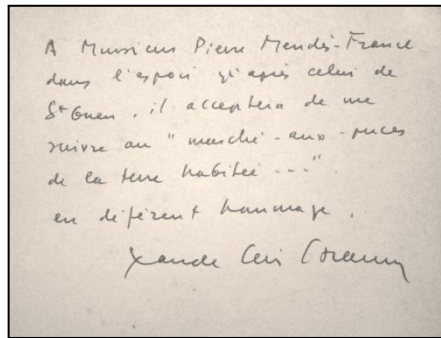 A Monsieur Pierre Mendès-France
dans l'espoir qu'après celui de
St Ouen, il acceptera de me
suivre au "marché-aux-puces
de la terre habitée ---".
en déférent hommage,